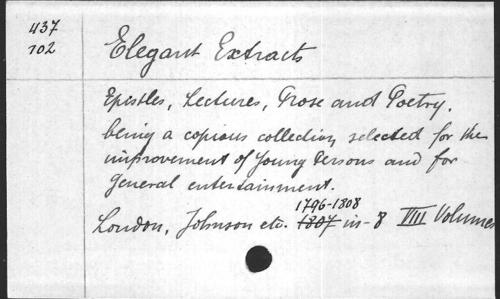 437
702
Elegant Extracts
Epistles, Lectures, Prose and Poetry.
being a copious collection, selected for the
improvement of young Persons and for
general entertainment.
1796-1808
London, Johnson etc. 1807 in-8 VIII Volumes